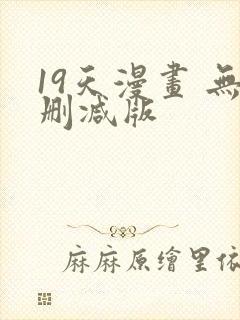 19天漫畫 無
刪減版
麻麻原繪里依